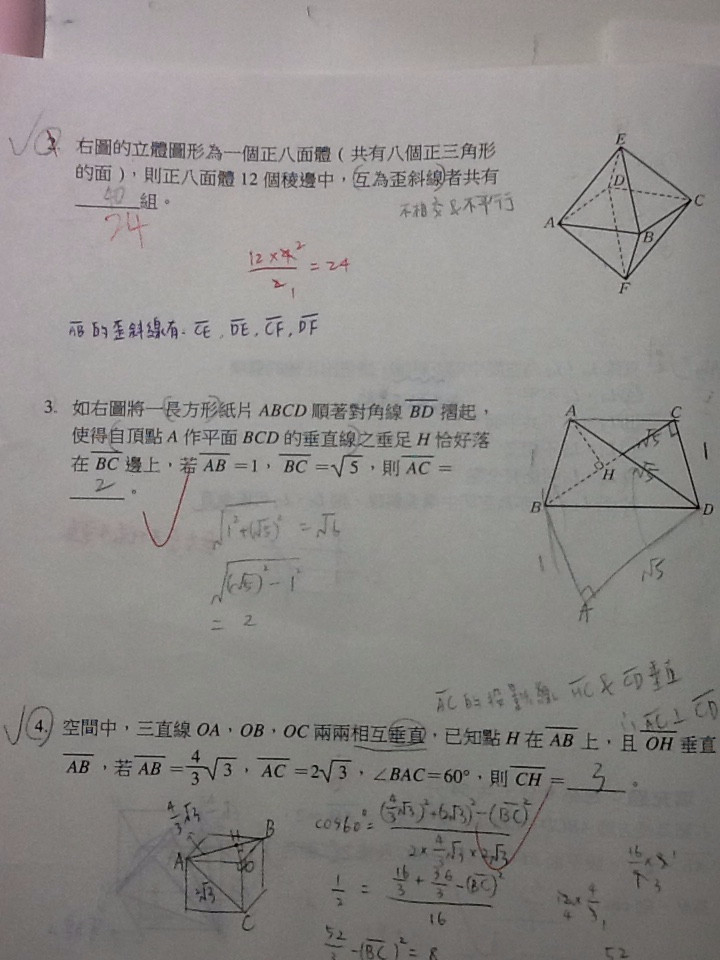 2. 右圖的立體圖形為一個正八面體（共有八個正三角形
的面），則正八面體 12 個稜邊中，互為歪斜線者共有
40 組。
不相交 & 不平行
24
12 × 4 2
2 1
= 24
AB 的歪斜線有. CE , DE , CF , DF
E
D
C
A
B
F
3. 如右圖將一長方形紙片 ABCD 順著對角線 BD 摺起，
使得自頂點 A 作平面 BCD 的垂直線之垂足 H 恰好落
在 BC 邊上，若 AB = 1，BC = √5，則 AC =
2 。
√1²+(√5)² = √6
√(√5)² − 1²
= 2
A
C
√5
H
√5
1
1
B
D
1
√5
A
AC 的投影線 HC & CD 垂直
∴ AC ⊥ CD
4. 空間中，三直線 OA，OB，OC 兩兩相互垂直，已知點 H 在 AB 上，且 OH 垂直
AB，若 AB = 4/3 √3，AC = 2√3，∠BAC = 60°，則 CH = 3 。
4/3 √3
A
H
B
O
2√3
C
cos60° = (4/3 √3)² + (2√3)² − (BC)²
2 × 4/3 √3 × 2√3
1/2 = 16/3 + 36/3 − (BC)²
16
52/3 − (BC)² = 8
52